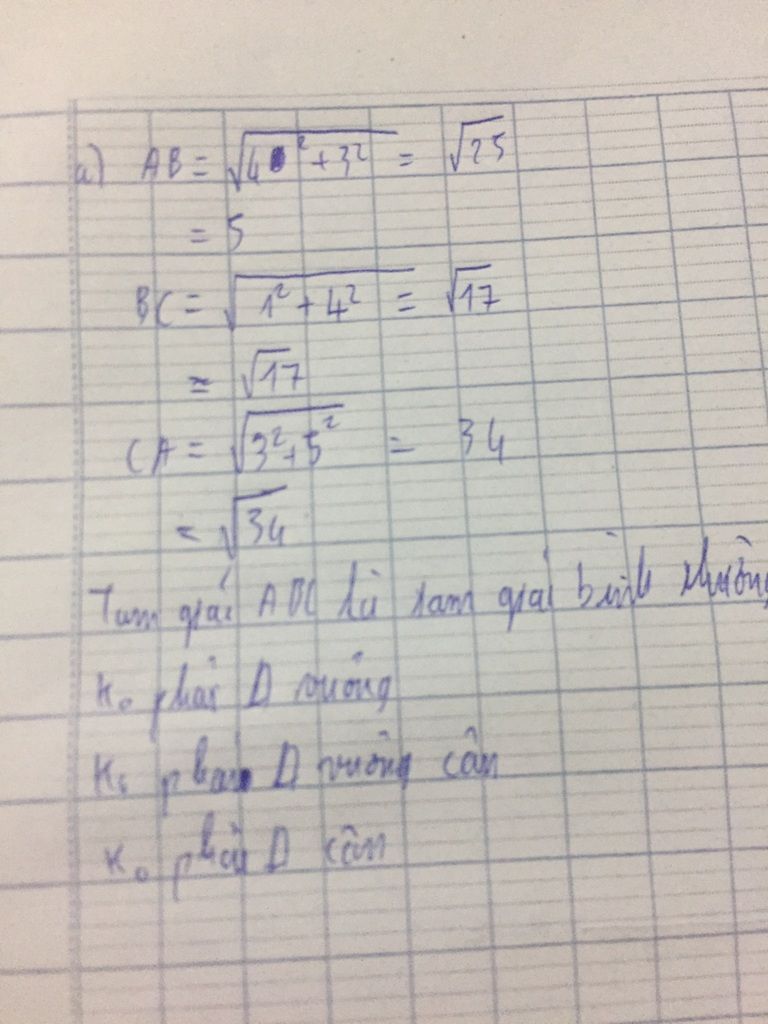 a) AB = √4² + 3² = √25
= 5
BC = √1² + 4² = √17
= √17
CA = √3² + 5² = 34
= √34
Tam giác ABC là tam giác bình thường
K₀ phải Δ vuông
K₀ phải Δ vuông cân
K₀ phải Δ cân